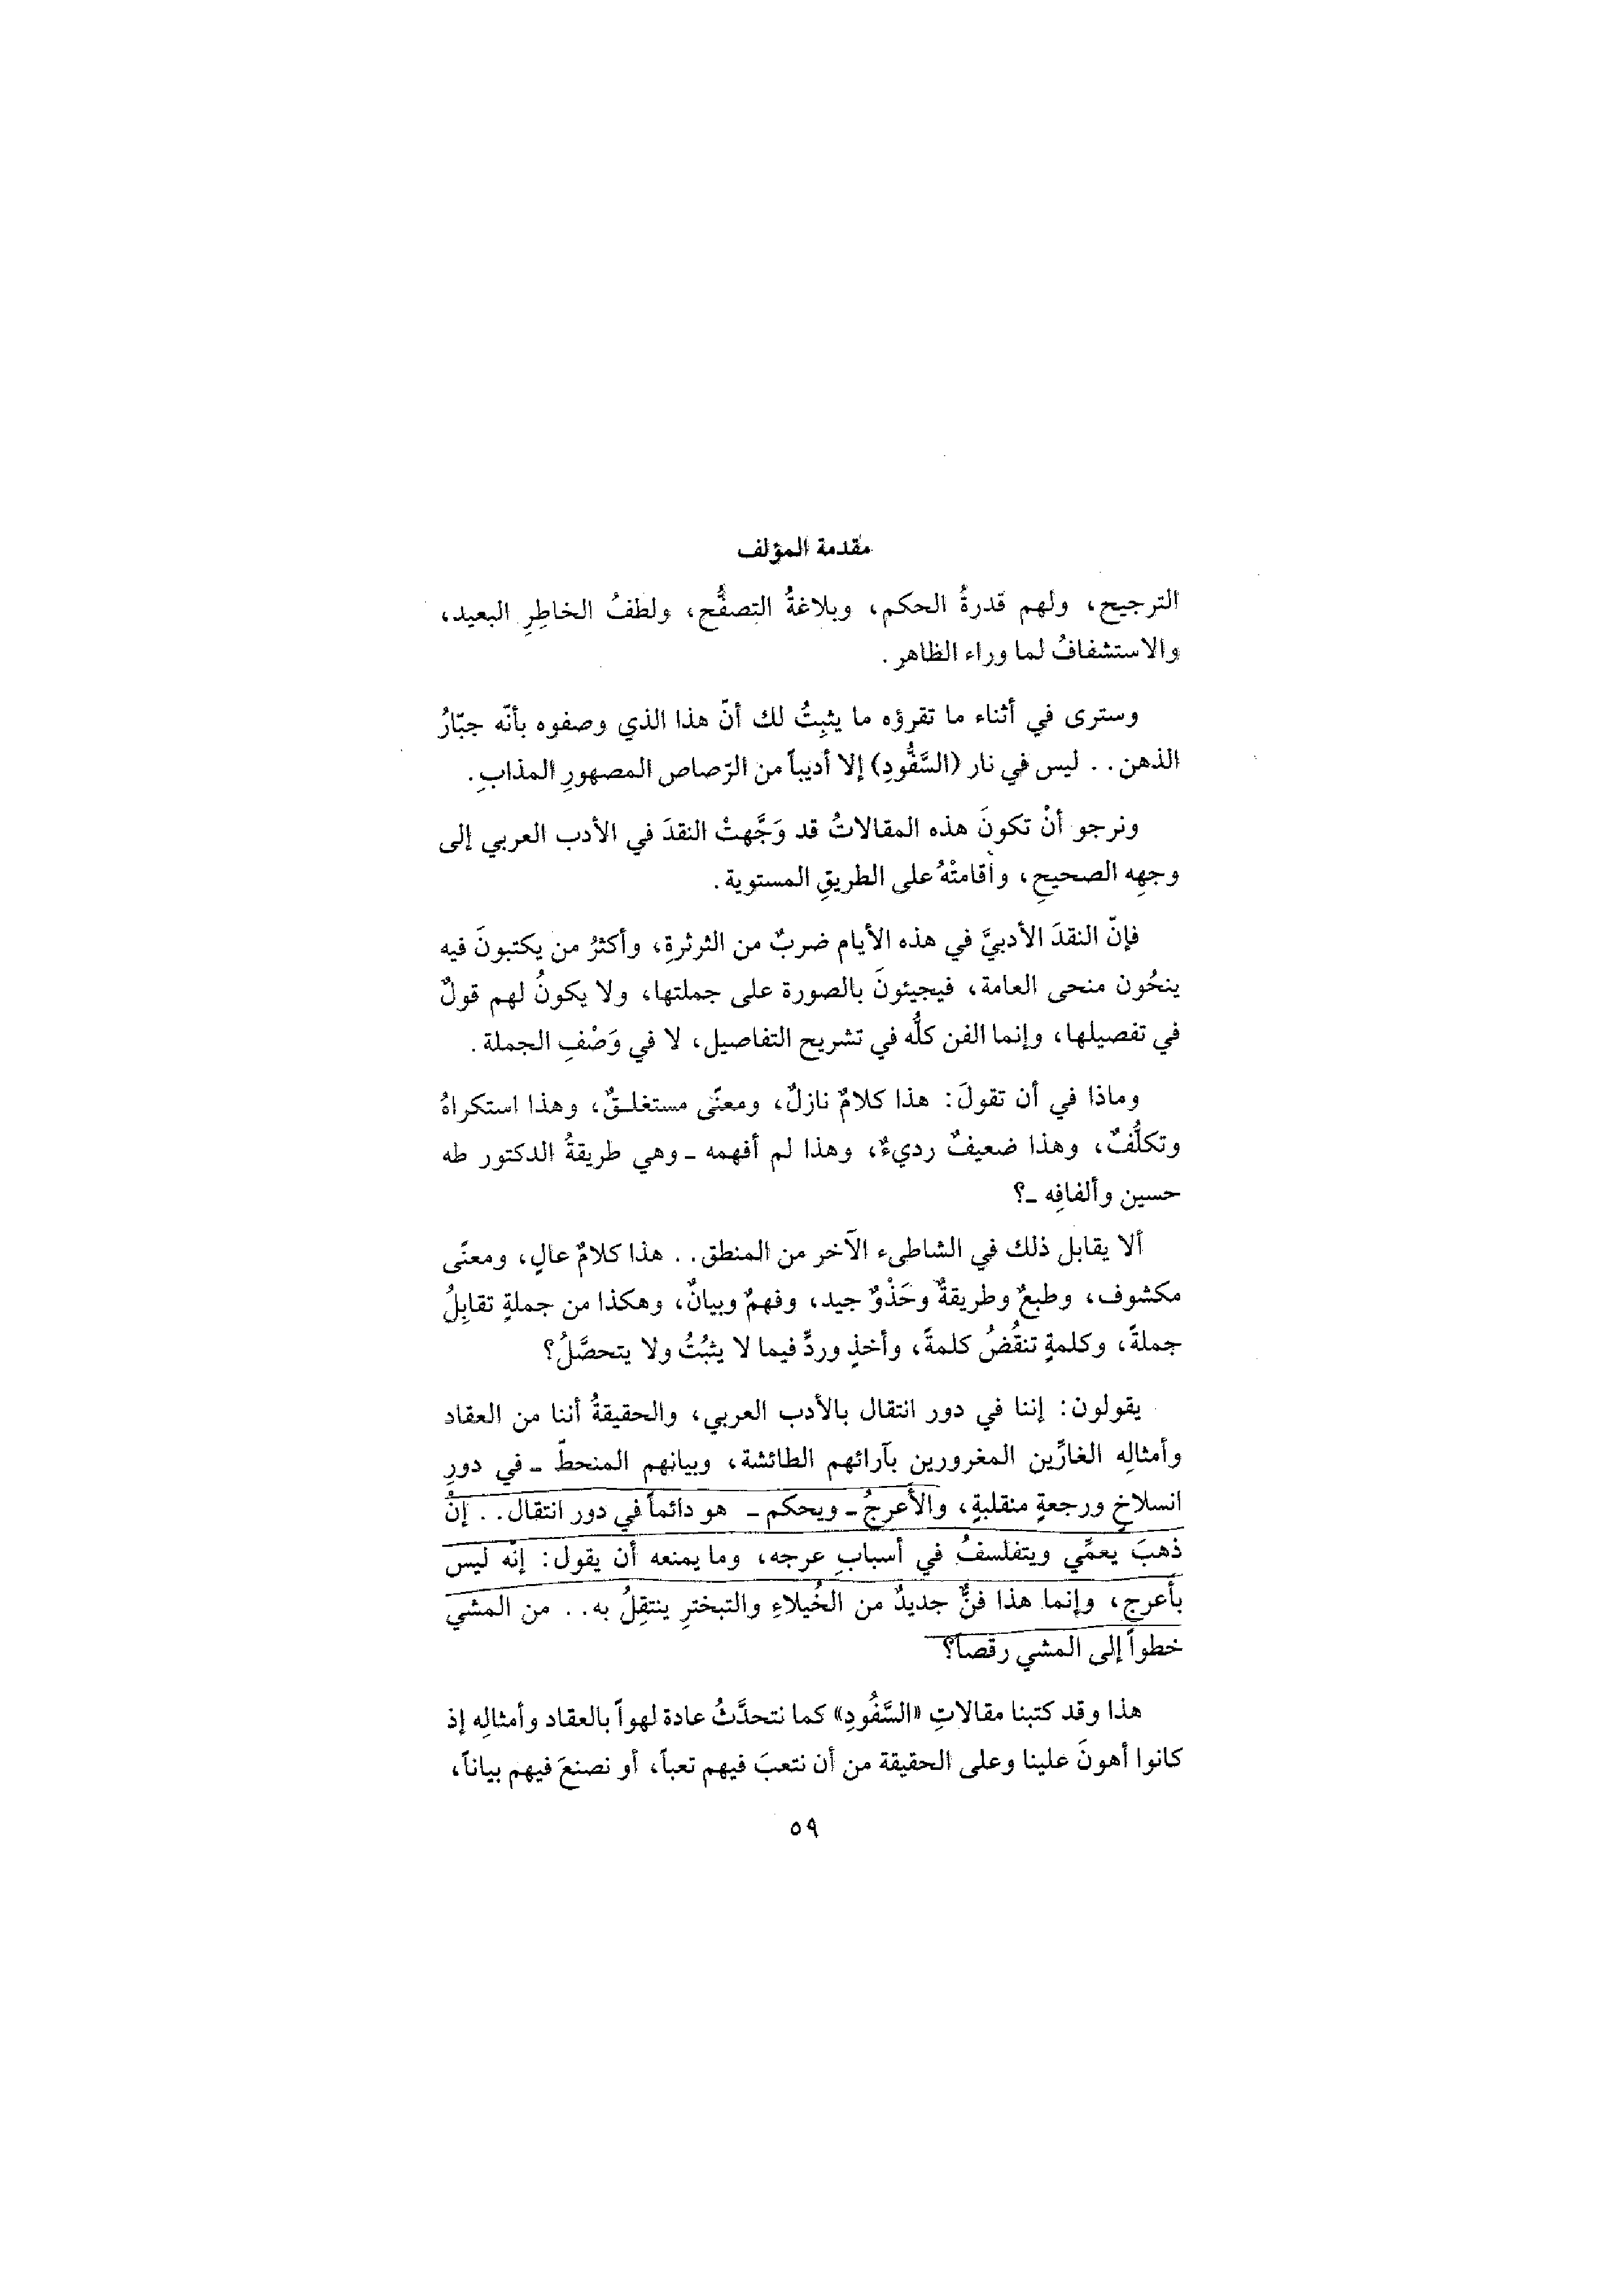 مقدمة المؤلف
الترجيح، ولهم قدرةُ الحكم، وبلاغةُ التصفُّح، ولطفُ الخاطِرِ البعيد،
والاستشفافُ لما وراء الظاهر.
وسترى في أثناء ما تقرؤه ما يثبِتُ لك أنّ هذا الذي وصفوه بأنّه جبّارُ
الذهن. . ليس في نار (السَّفُّودِ) إلا أديباً من الرّصاص المصهورِ المذابِ.
ونرجو أنْ تكونَ هذه المقالاتُ قد وَجَّهتْ النقدَ في الأدب العربي إلى
وجهِه الصحيحِ، وأقامتْهُ على الطريقِ المستوية.
فإنّ النقدَ الأدبيَّ في هذه الأيام ضربٌ من الثرثرةِ، وأكثرُ من يكتبونَ فيه
ينحُون منحى العامة، فيجيئونَ بالصورة على جملتها، ولا يكونُ لهم قولٌ
في تفصيلها، وإنما الفن كلُّه في تشريح التفاصيل، لا في وَصْفِ الجملة.
وماذا في أن تقولَ: هذا كلامٌ نازلٌ، ومعنًى مستغلـقٌ، وهذا استكراهٌ
وتكلُّفٌ، وهذا ضعيفٌ رديءٌ، وهذا لم أفهمه ـ وهي طريقةُ الدكتور طه
حسين وألفافِه ـ؟
ألا يقابل ذلك في الشاطىء الآخر من المنطق. . هذا كلامٌ عالٍ، ومعنًى
مكشوف، وطبعٌ وطريقةٌ وحَذْوٌ جيد، وفهمٌ وبيانٌ، وهكذا من جملةٍ تقابِلُ
جملةً، وكلمةٍ تنقُضُ كلمةً، وأخذٍ وردٍّ فيما لا يثبُتُ ولا يتحصَّلُ؟
يقولون: إننا في دور انتقال بالأدب العربي، والحقيقةُ أننا من العقاد
وأمثالِه الغارِّين المغرورين بآرائهم الطائشة، وبيانِهم المنحطّ ـ في دورِ
انسلاخٍ ورجعةٍ منقلبةٍ، والأعرجُ ـ ويحكم ـ هو دائماً في دور انتقال. . إنْ
ذهبَ يعمِّي ويتفلسفُ في أسبابِ عرجه، وما يمنعه أن يقول: إنّه ليس
بأعرج، وإنما هذا فنٌّ جديدٌ من الخُيلاءِ والتبخترِ ينتقِلُ به. . من المشي
خطواً إلى المشي رقصاً؟
هذا وقد كتبنا مقالاتِ «السَّفُودِ» كما نتحدَّثُ عادة لهواً بالعقاد وأمثالِه إذ
كانوا أهونَ علينا وعلى الحقيقة من أن نتعبَ فيهم تعباً، أو نصنعَ فيهم بياناً،
٥٩